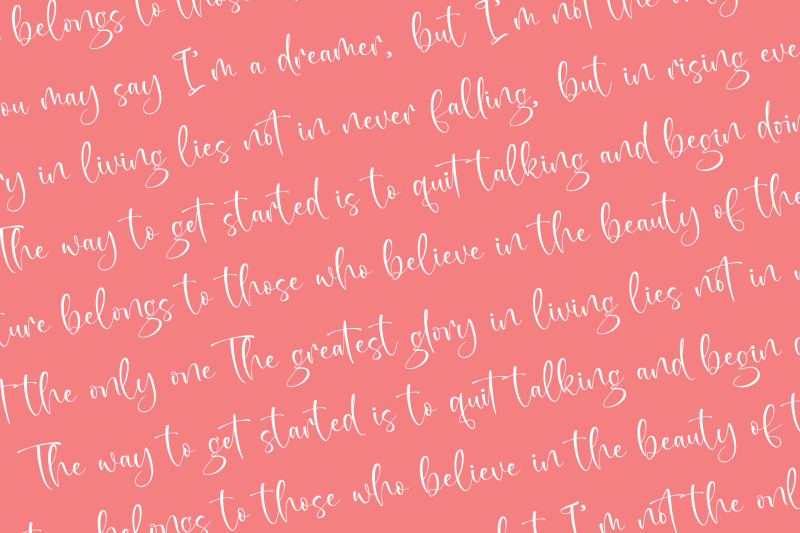 belongs to those
you may say I'm a dreamer, but I'm not the only
ry in living lies not in never falling, but in rising eve
The way to get started is to quit talking and begin doin
ture belongs to those who believe in the beauty of the
t the only one The greatest glory in living lies not in
The way to get started is to quit talking and begin
belongs to those who believe in the beauty of t
but I'm not the onl